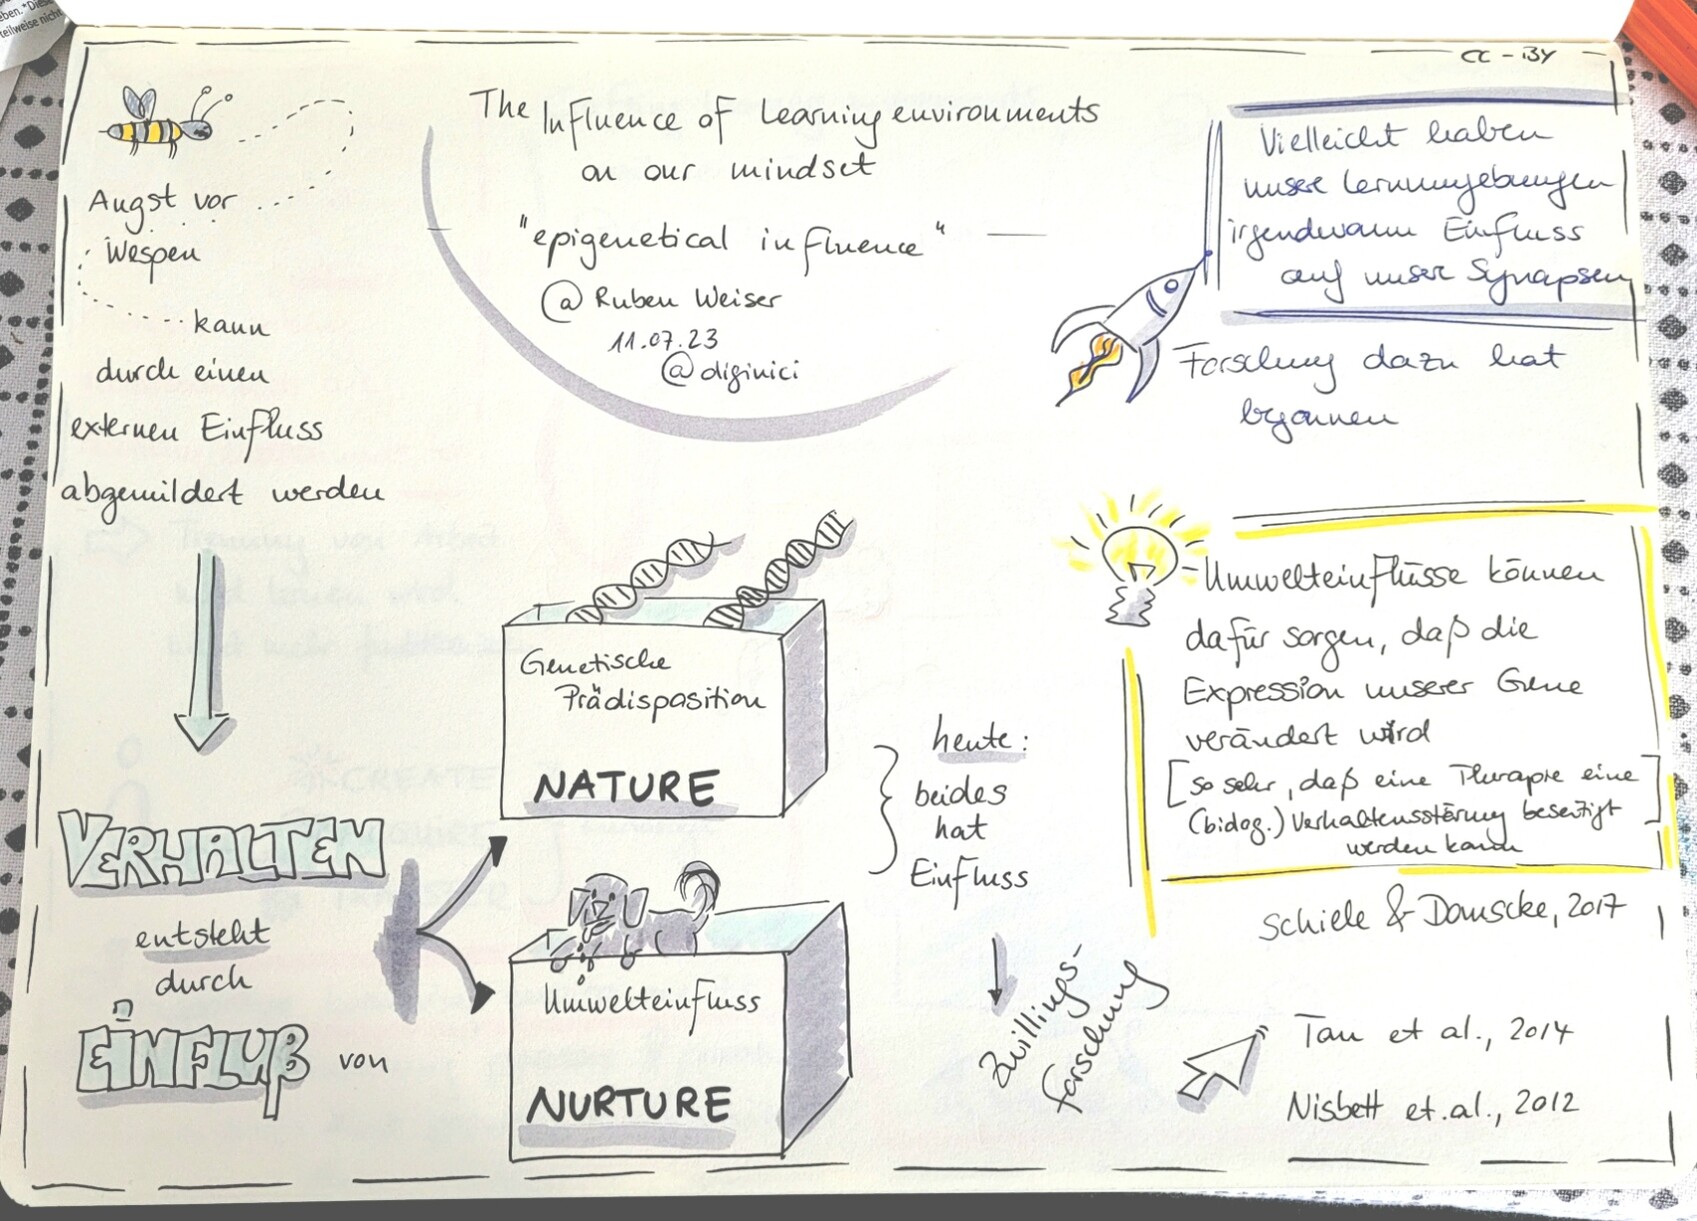 eben. "Diese
teilweise nicht
CC-BY
The Influence of Learning environments
on our mindset
"epigenetical influence"
@ Ruben Weiser
11.07.23
@diginici
Angst vor
Wespen
kann
durch einen
externen Einfluss
abgemildert werden
VERHALTEN
entsteht
durch
EINFLUß von
Genetische
Prädisposition
NATURE
Umwelteinfluss
NURTURE
heute:
beides
hat
Einfluss
Zwillings-
forschung
Vielleicht haben
unsere Lernumgebungen
irgendwann Einfluss
auf unsere Synapsen
Forschung dazu hat
begonnen
Umwelteinflüsse können
dafür sorgen, daß die
Expression unserer Gene
verändert wird
[so sehr, daß eine Therapie eine
(biolog.) Verhaltensstörung beseitigt
werden kann]
Schiele & Domscke, 2017
Tan et al., 2014
Nisbett et.al., 2012